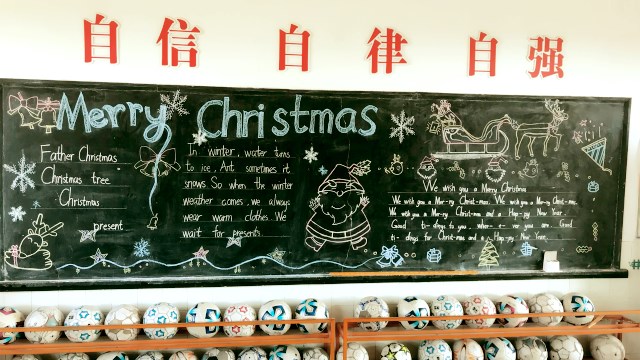 自信 自律 自强
Merry Christmas
Father Christmas
Christmas tree
Christmas
present
In winter, water turns
to ice. Ant sometimes it
snows. So when the winter
weather comes, we always
wear warm clothes. We
wait for presents.
We wish you a Merry Christmas
We wish you a Mer-ry Christ-mas. We wish you a Mer-ry Christ-mas.
We wish you a Mer-ry Christ-mas and a Hap-py New Year.
Good ti-dings to you where-e-ver you are Good
ti-dings for Christ-mas and a Hap-py New Year.